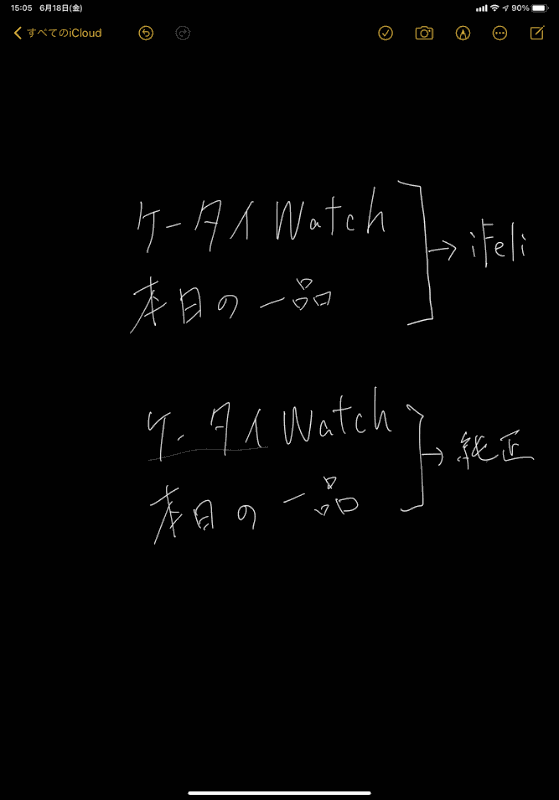 15:05 6月18日(金) 90%
すべてのiCloud
ケータイWatch
本日の一品
→ iFeli
ケータイWatch
本日の一品
→ 純正